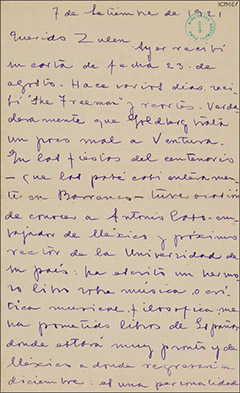 7 de Setiembre de 1921
Querido Zulen
Ayer recibí
su carta de fecha 23 de
agosto. Hace varios días reci-
bí "The Freeman" y recortes. Verda-
deramente que Goldberg trata
un poco mal a Ventura.
En las fiestas del centenario
— que las pasé casi enteramen-
te en Barranco — tuve ocasión
de conocer a Antonio Caso - em-
bajador de México y próximo
rector de la Universidad de
su país: ha escrito un hermo-
so libro sobre música o crí-
tica musical filosófica, me
ha prometido libros de España
donde estará muy pronto y de
México a donde regresará en
diciembre: es una personalidad